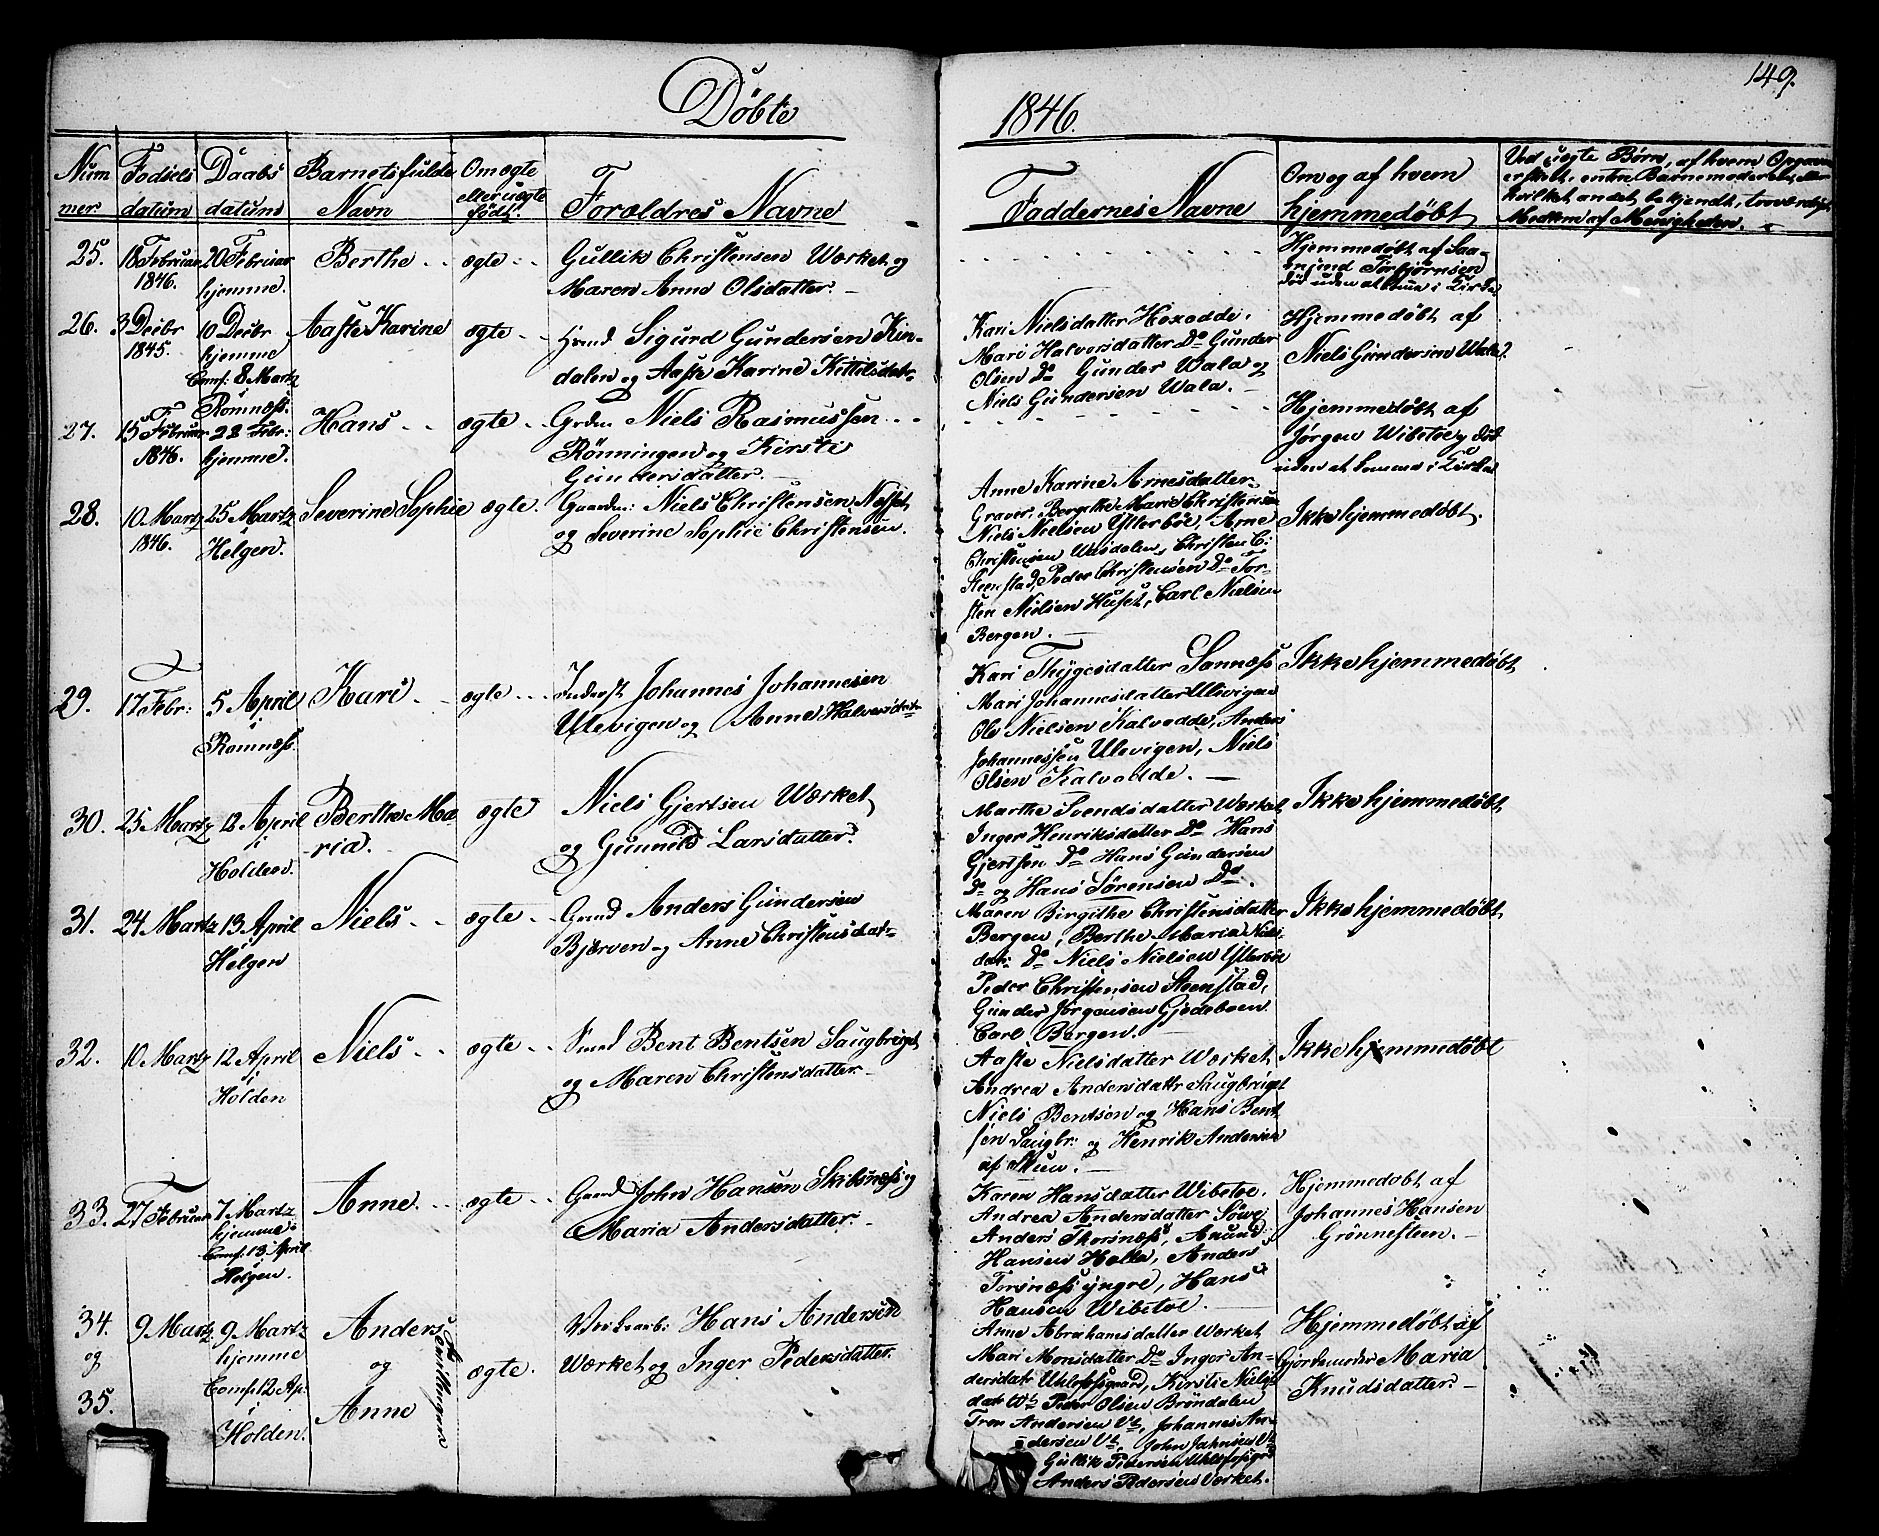 149.
Döbte
1846.
Num
mer.
Födsels
datum
Daabs
datum
Barnets fulde
Navn
Om ægte
eller uægte
född.
Forældres Navne
Faddernes Navne
Om og af hvem
hjemmedöbt
Ved uægte Börn, af hvem Opgaven
er skeet, enten Barnemoderen, eller
hvilket andet bekjendt, troværdigt
Medlem af Menigheden.
25.
18 Februar
1846.
20 Februar
hjemme.
Berthe
ægte
Gullik Christensen Værket og
Maren Anne Olsdatter.
Hjemmedöbt af Saa-
mund Torbjörnsen
död uden at komme i Kirke
26.
3 Decbr
1845.
10 Decbr
hjemme
Conf: 8 Martz
Romnæss.
Aaste Karine
ægte
Sigurd Gundersen Kin-
dalen og Aaste Karine Kittilsdatr
Kari Nielsdatter Hoxodde,
Mari Halvorsdatter Do Gunder
Olsen Do Gunder Wala og
Niels Gundersen Wala.
Hjemmedöbt af
Niels Gundersen Wala.
27.
15 Februar
1846.
22 Febr:
hjemme.
Hans
ægte
Grdm Niels Rasmussen
Rönningen og Kirsti
Gundersdatter.
Hjemmedöbt af
Jörgen Wibetoe, död
uden at komme i Kirke
28.
10 Martz
1846.
25 Martz
Helgen.
Severine Sophie
ægte.
Gaardm: Niels Christensen Næsset
og Severine Sophie Christensen.
Anne Karine Arnesdatter
Graver, Bergithe Marie Christensen
Niels Nielsen Ytterböe, Arne
Christensen Wasdalen, Christen C:
Steenstad, Peder Christensen Do Tor-
sten Nielsen Huset, Carl Nielsen
Bergen.
Ikke hjemmedöbt.
29.
17 Febr:
5 April
i
Romnæss.
Kari
ægte
Inderst Johannes Johannesen
Ulevigen og Anne Halvorsdatr
Kari Thygesdatter Sannæss
Mari Johannesdatter Ulevigen
Ole Nielsen Kalvodde, Anders
Johannessen Ulevigen, Niels
Olsen Kalvodde.
Ikke hjemmedöbt
30.
25 Martz
12 April
i
Holden.
Berthe Ma-
ria.
ægte
Niels Gjertsen Værket
og Gunnild Larsdatter.
Marthe Svendsdatter Værket,
Inger Henriksdatter Do Hans
Gjertsen Do Hans Gundersen
Do og Hans Sörensen Do.
Ikke hjemmedöbt
31.
24 Martz
13 April
i
Helgen
Niels
ægte
Grmd Anders Gundersen
Bjerven og Anne Christensdat-
Maren Birgithe Christensdatter
Bergen, Berthe Maria Niels-
datr: Do Niels Nielsen Ytterböe
Peder Christensen Steenstad,
Gunder Jörgensen Gjedeboen
Carl Bergen.
Ikke hjemmedöbt
32.
10 Martz
12 April
i
Holden
Niels
ægte
Smed Bent Bentsen Saugbruget
og Maren Christensdatter
Aaste Nielsdatter Værket,
Andrea Andersdattr Saugbruget
Niels Bentsen og Hans Bent
sen Saugbr: og Henrik Andersen
af Skien.
Ikke hjemmedöbt
33.
27 Februar
7 Martz
hjemme
Conf: 13 April
Helgen.
Anne
ægte
Grmd John Hansen Skilsnæss og
Maria Andersdatter.
Karen Hansdatter Wibetoe,
Andrea Andersdatter Söwe,
Anders Thorsnæss, Amund
Hansen Holla, Anders
Torsnæss yngre, Hans
Hansen Wibetoe.
Hjemmedöbt af
Johannes Hansen
Grönnesteen.
34.
og
35.
9 Martz
9 Martz
hjemme
Conf: 12 Ap.
i
Holden.
Anders
og
Anne
Tvillinger
ægte.
Værksarb: Hans Andersen
Værket og Inger Pedersdatter.
Anne Abrahamsdatter Værket
Mari Monsdatter Do Inger An-
dersdatr Ulefossgaard, Kirsti Niels
datr Vt Peder Olsen Bröndalen
Tron Andersen Vt, Johannes An-
dersen Vt, John Jahnsen Vt
Gullik Pedersen Ulefossgrd
Anders Pedersen Værket.
Hjemmedöbt af
Gjordemoder Maria
Knudsdatter.